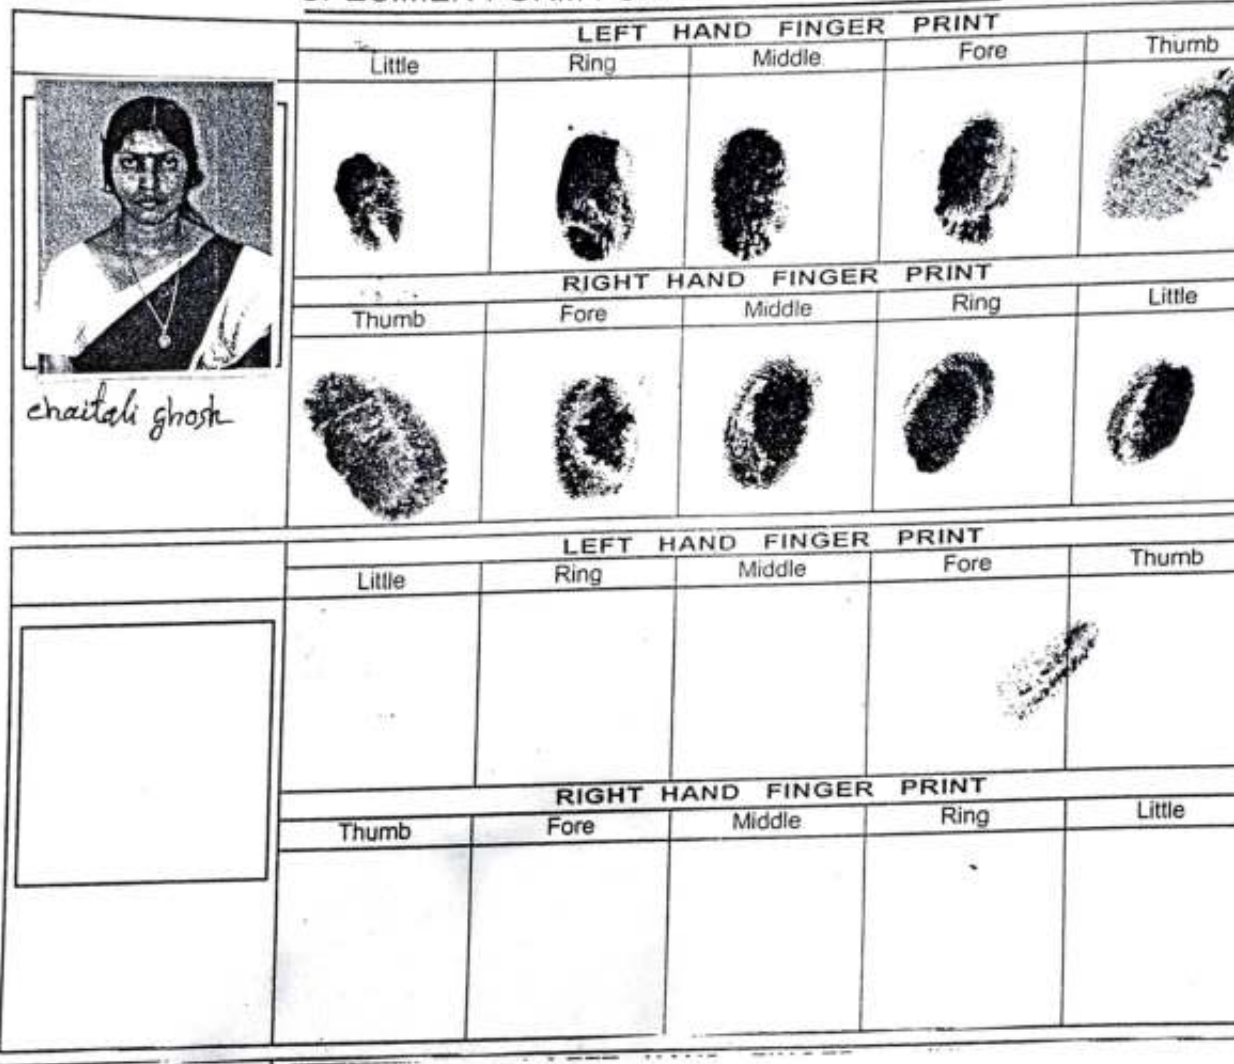 LEFT HAND FINGER PRINT
Little Ring Middle Fore Thumb
RIGHT HAND FINGER PRINT
Thumb Fore Middle Ring Little
chaitali ghosh
LEFT HAND FINGER PRINT
Little Ring Middle Fore Thumb
RIGHT HAND FINGER PRINT
Thumb Fore Middle Ring Little